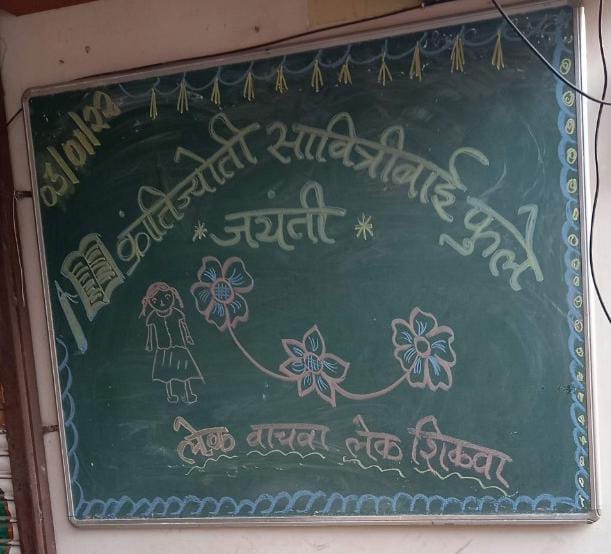 ०३/०१/२२
क्रांतिज्योती सावित्रीबाई फुले
जयंती
लेक वाचवा लेक शिकवा